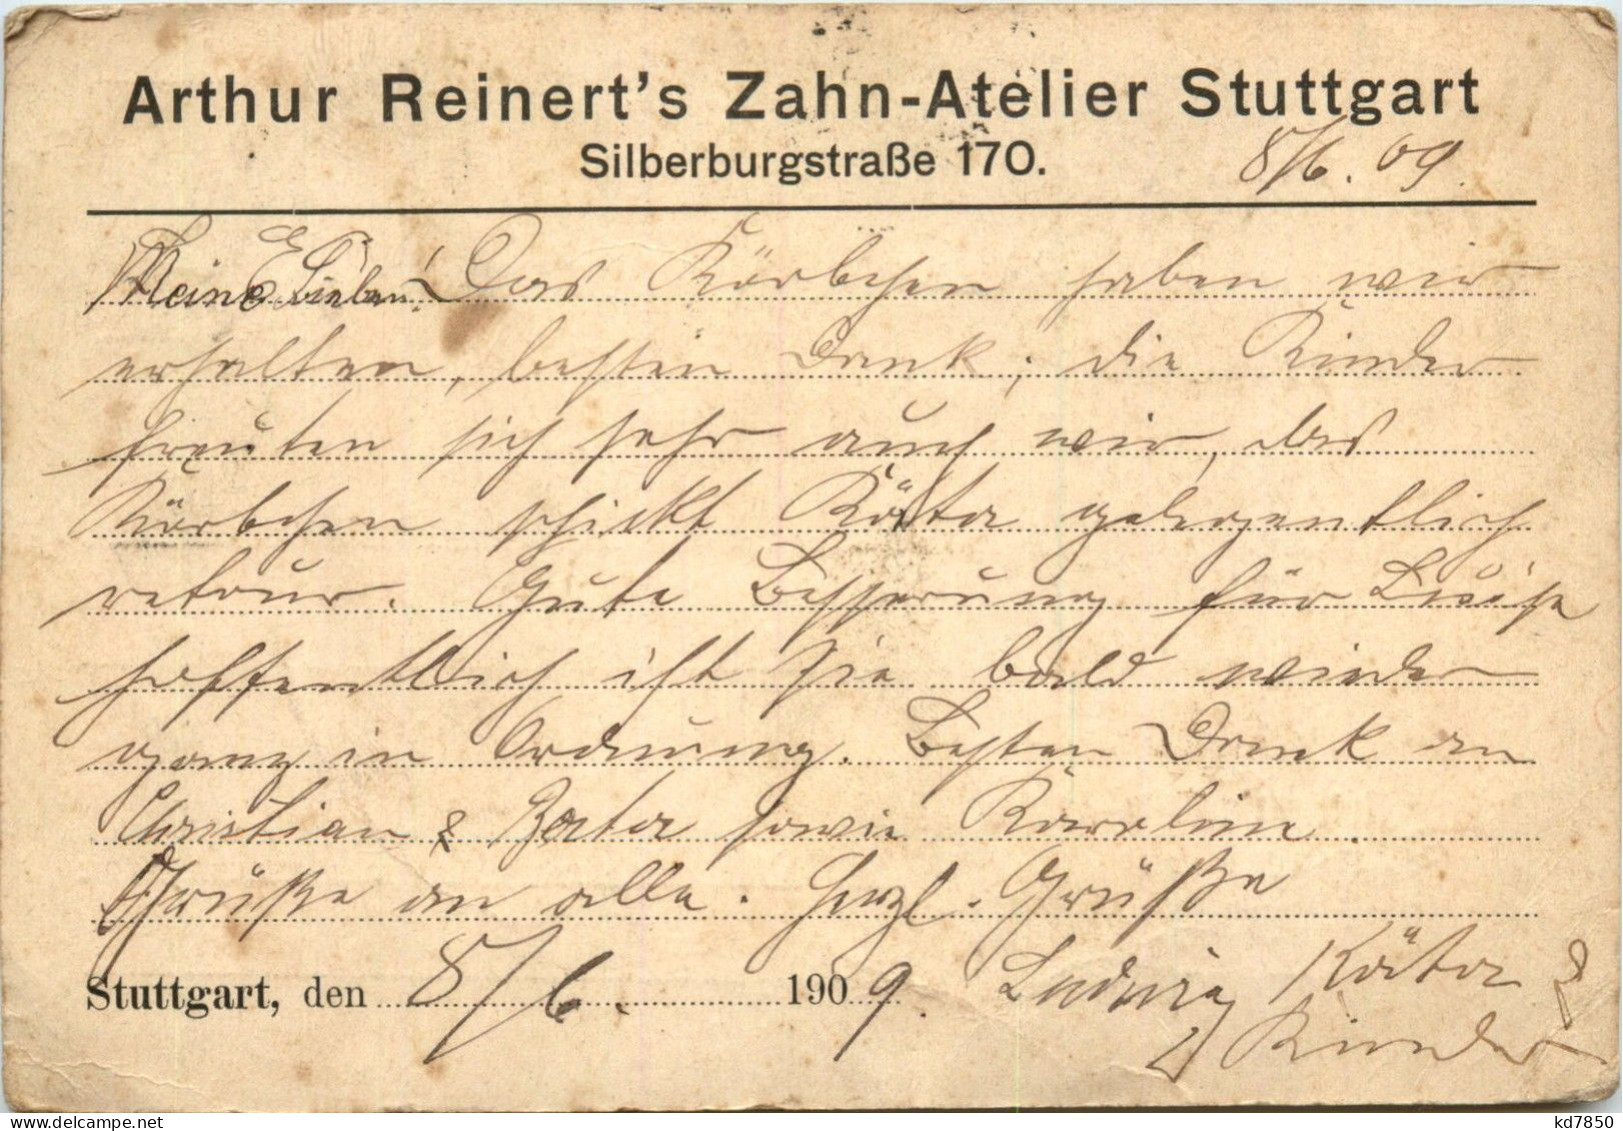 Arthur Reinert's Zahn-Atelier Stuttgart
Silberburgstraße 170.
8/6. 09.
Meine Lieben! Das Körbchen haben wir
erhalten, besten Dank; die Kinder
freuten sich sehr auch wir, das
Körbchen schickt Käta gelegentlich
retour. Gute Besserung für Luise
hoffentlich ist sie bald wieder
ganz in Ordnung. Besten Dank an
Christian & sowie Karoline.
Grüße an alle. Herzl. Grüße
Stuttgart, den 8/6. 1909. Ludwig Käta &
Kinder
kd7850